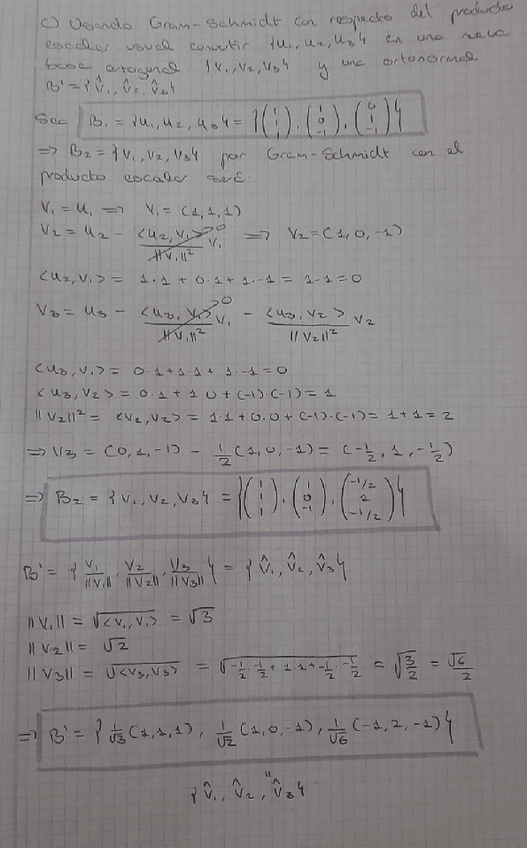 c) Usando Gram-Schmidt con respecto del producto
escalar usual convertir {u₁, u₂, u₃} en una nueva
base ortogonal {v₁, v₂, v₃} y una ortonormal
B' = {v̂₁, v̂₂, v̂₃}
Sea B₁ = {u₁, u₂, u₃} = {(1 1 1), (1 0 -1), (0 1 -1)}
=> B₂ = {v₁, v₂, v₃} por Gram-Schmidt con el
producto escalar será:
v₁ = u₁ => v₁ = (1,1,1)
v₂ = u₂ - <u₂,v₁>/||v₁||² v₁ => v₂ = (1,0,-1)
<u₂,v₁> = 1·1 + 0·1 + 1·-1 = 1-1 = 0
v₃ = u₃ - <u₃,v₁>/||v₁||² v₁ - <u₃,v₂>/||v₂||² v₂
<u₃,v₁> = 0·1 + 1·1 + 1·-1 = 0
<u₃,v₂> = 0·1 + 1·0 + (-1)(-1) = 1
||v₂||² = <v₂,v₂> = 1·1 + 0·0 + (-1)·(-1) = 1+1 = 2
=> v₃ = (0,1,-1) - 1/2 (1,0,-1) = (-1/2, 1, -1/2)
=> B₂ = {v₁, v₂, v₃} = {(1 1 1), (1 0 -1), (-1/2 2 -1/2)}
B' = {v₁/||v₁||, v₂/||v₂||, v₃/||v₃||} = {v̂₁, v̂₂, v̂₃}
||v₁|| = √<v₁,v₁> = √3
||v₂|| = √2
||v₃|| = √<v₃,v₃> = √(-1/2·-1/2 + 1·1 + -1/2·-1/2) = √(3/2) = √6/2
=> B' = {1/√3 (1,1,1), 1/√2 (1,0,-1), 1/√6 (-1,2,-1)}
"
{v̂₁, v̂₂, v̂₃}